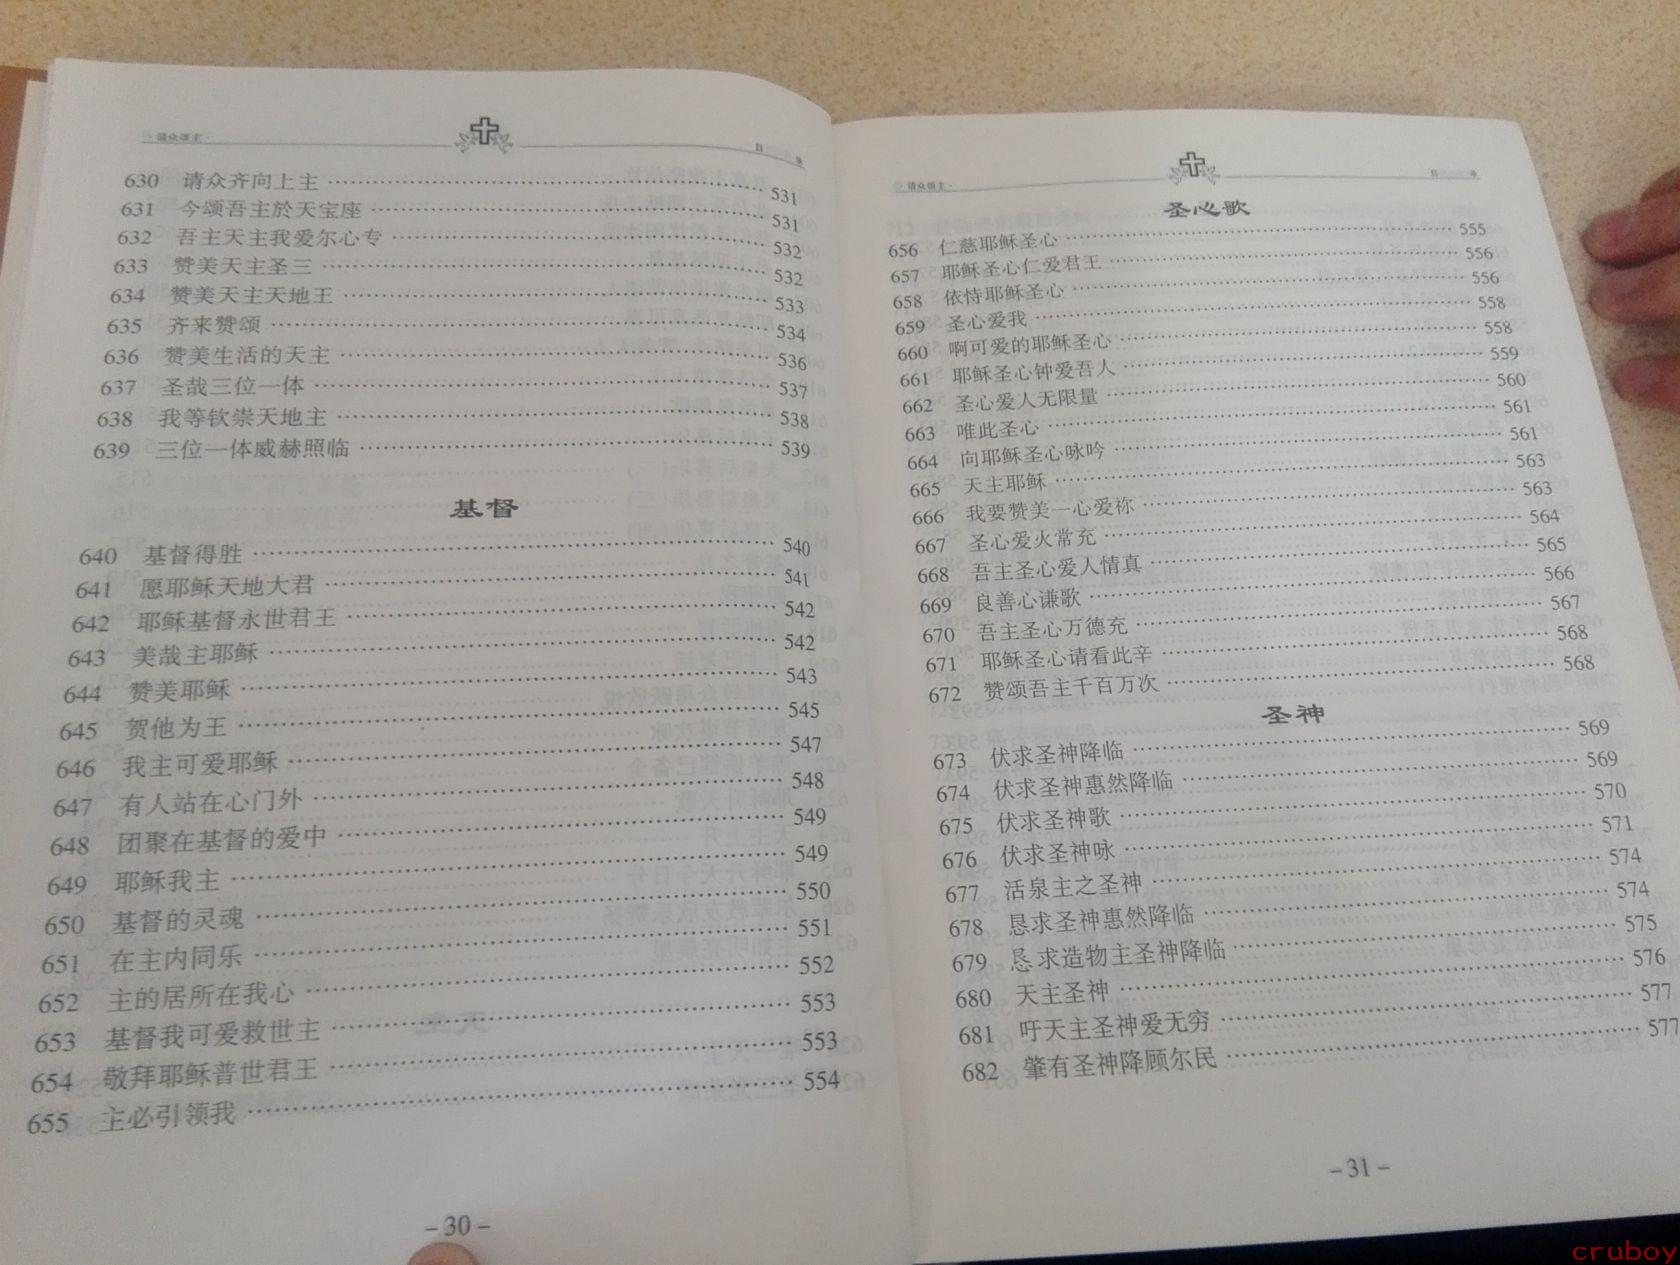 ·请众颂主·
目 录
630 请众齐向上主 531
631 今颂吾主於天宝座 531
632 吾主天主我爱尔心专 532
633 赞美天主圣三 532
634 赞美天主天地王 533
635 齐来赞颂 534
636 赞美生活的天主 536
637 圣哉三位一体 537
638 我等钦崇天地主 538
639 三位一体威赫照临 539
基督
640 基督得胜 540
641 愿耶稣天地大君 541
642 耶稣基督永世君王 542
643 美哉主耶稣 542
644 赞美耶稣 543
645 贺他为王 545
646 我主可爱耶稣 547
647 有人站在心门外 548
648 团聚在基督的爱中 549
649 耶稣我主 549
650 基督的灵魂 550
651 在主内同乐 551
652 主的居所在我心 552
653 基督我可爱救世主 553
654 敬拜耶稣普世君王 553
655 主必引领我 554
–30–
·请众颂主·
目 录
圣心歌
656 仁慈耶稣圣心 555
657 耶稣圣心仁爱君王 556
658 依恃耶稣圣心 556
659 圣心爱我 558
660 啊可爱的耶稣圣心 558
661 耶稣圣心钟爱吾人 559
662 圣心爱人无限量 560
663 唯此圣心 561
664 向耶稣圣心咏吟 561
665 天主耶稣 563
666 我要赞美一心爱祢 563
667 圣心爱火常充 564
668 吾主圣心爱人情真 565
669 良善心谦歌 566
670 吾主圣心万德充 567
671 耶稣圣心请看此辛 568
672 赞颂吾主千百万次 568
圣神
673 伏求圣神降临 569
674 伏求圣神惠然降临 569
675 伏求圣神歌 570
676 伏求圣神咏 571
677 活泉主之圣神 574
678 恳求圣神惠然降临 574
679 恳求造物主圣神降临 575
680 天主圣神 576
681 吁天主圣神爱无穷 577
682 肇有圣神降顾尔民 577
–31–
cruboy